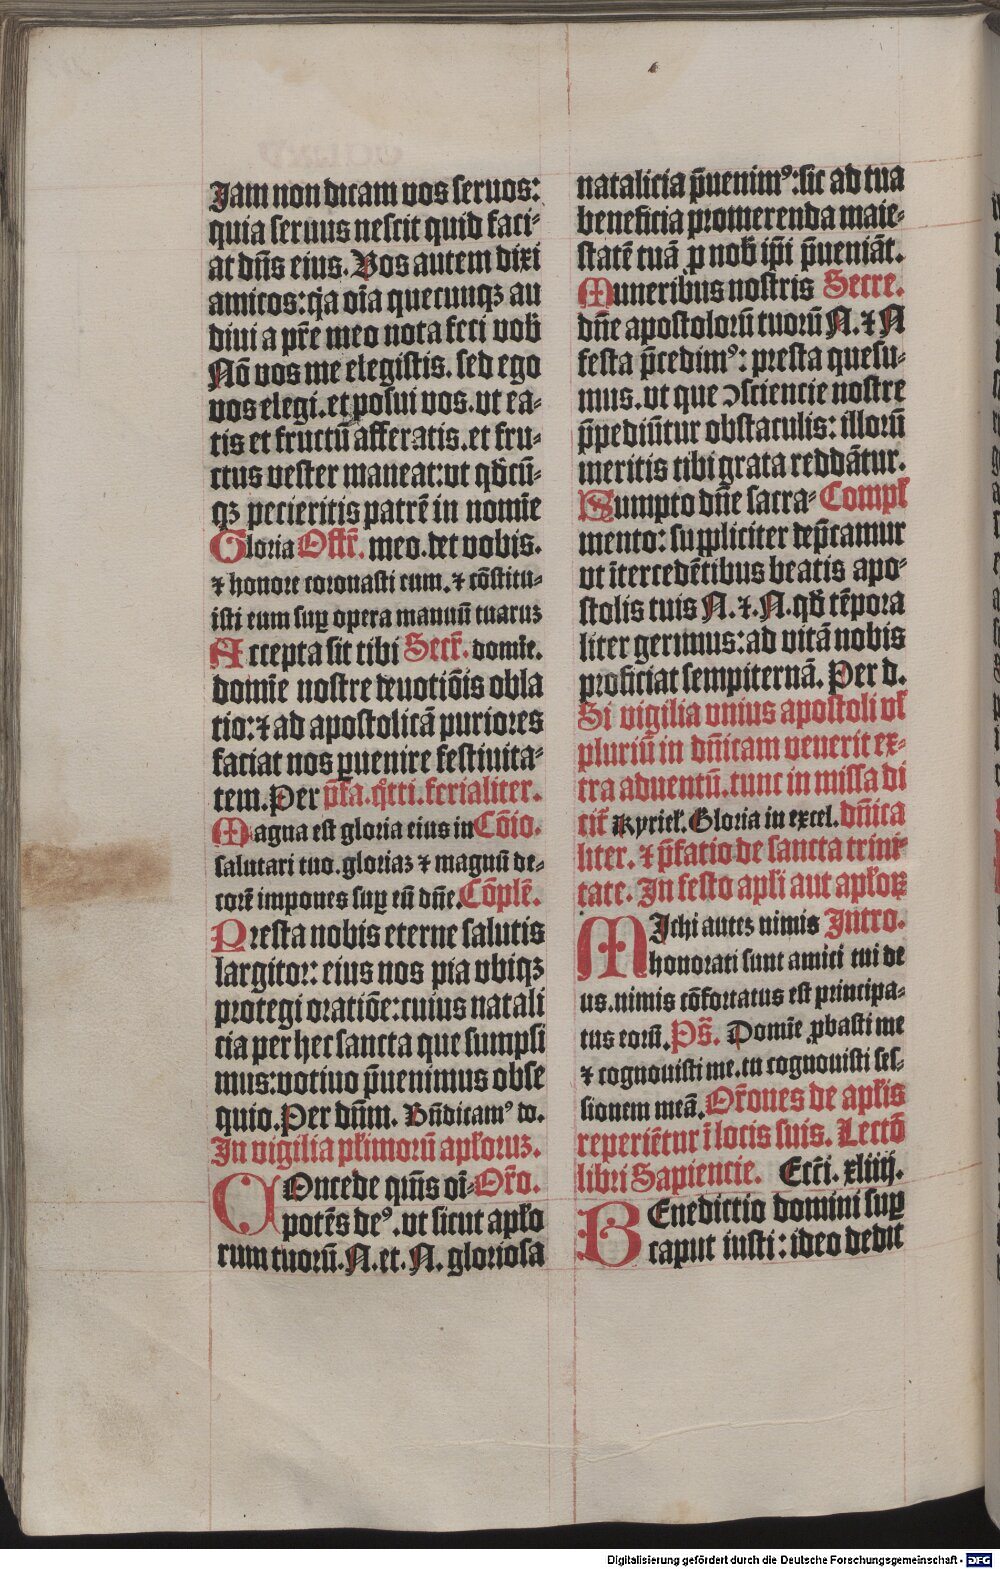 Jam non dicam vos seruos:
quia seruus nescit quid faci-
at dn̄s eius. Vos autem dixi
amicos: q̇a oīa quecunqꝫ au
diui a pr̄e meo nota feci vob̄
Nō vos me elegistis. sed ego
vos elegi. et posui vos. vt ea-
tis et fructū afferatis. et fru-
ctus vester maneat: vt qd̄cū-
qꝫ pecieritis patrē in nomīe
Gloria Offr̄. meo. det vobis.
⁊ honore coronasti eum. ⁊ cōstitu-
isti eum suꝑ opera manuū tuaruꝫ
Accepta sit tibi Secr̄. domīe.
domīe nostre deuotiōis obla
tio: ⁊ ad apostolicā puriores
faciat nos ꝑuenire festiuita-
tem. Per p̄fa. q̄tti. ferialiter.
Magna est gloria eius in Cōīo.
salutari tuo. gloriaꝫ ⁊ magnū de-
corē impones suꝑ eū dn̄e. Cōplē.
Presta nobis eterne salutis
largitor: eius nos pia vbiqꝫ
protegi oratiōe: cuius natali
cia per hec sancta que sumpsi
mus: votiuo p̄uenimus obse
quio. Per dn̄m. Bn̄dicamꝰ do.
In vigilia pl̄imorū apl̄oruꝫ.
COncede qm̄s oī- Or̄o.
potēs deꝰ. vt sicut apl̄o
rum tuorū. N. et. N. gloriosa
natalicia p̄uenimꝰ: sic ad tua
beneficia promerenda maie-
statē tuā ꝓ nob̄ ip̄i p̄ueniāt.
Muneribus nostris Secre.
dn̄e apostolorū tuorū N. ⁊ N
festa p̄cedimꝰ: presta quesu-
mus. vt que ꝯsciencie nostre
p̄pediūtur obstaculis: illorū
meritis tibi grata reddātur.
Sumpto dn̄e sacra- Compl̄
mento: suppliciter dep̄camur
vt ītercedētibus beatis apo-
stolis tuis N. ⁊. N. qd̄ tēpora
liter gerimus: ad vitā nobis
proficiat sempiternā. Per d.
Si vigilia vnius apostoli vl̄
pluriū in dn̄icam venerit ex-
tra aduentū. tunc in missa di
cit̄ Kyriel̄. Gloria in excel. dn̄ica
liter. ⁊ p̄fatio de sancta trini-
tate. In festo apl̄i aut apl̄oꝝ
MIchi auteꝫ nimis Intro.
honorati sunt amici tui de
us. nimis cōfortatus est principa-
tus eorū. Ps̄. Domīe ꝓbasti me
⁊ cognouisti me. tu cognouisti ses-
sionem meā. Or̄ones de apl̄is
reperiētur ī locis suis. Lectō
libri Sapiencie. Ecc̄i. xliiij.
BEnedictio domini suꝑ
caput iusti: ideo dedit
Digitalisierung gefördert durch die Deutsche Forschungsgemeinschaft - DFG